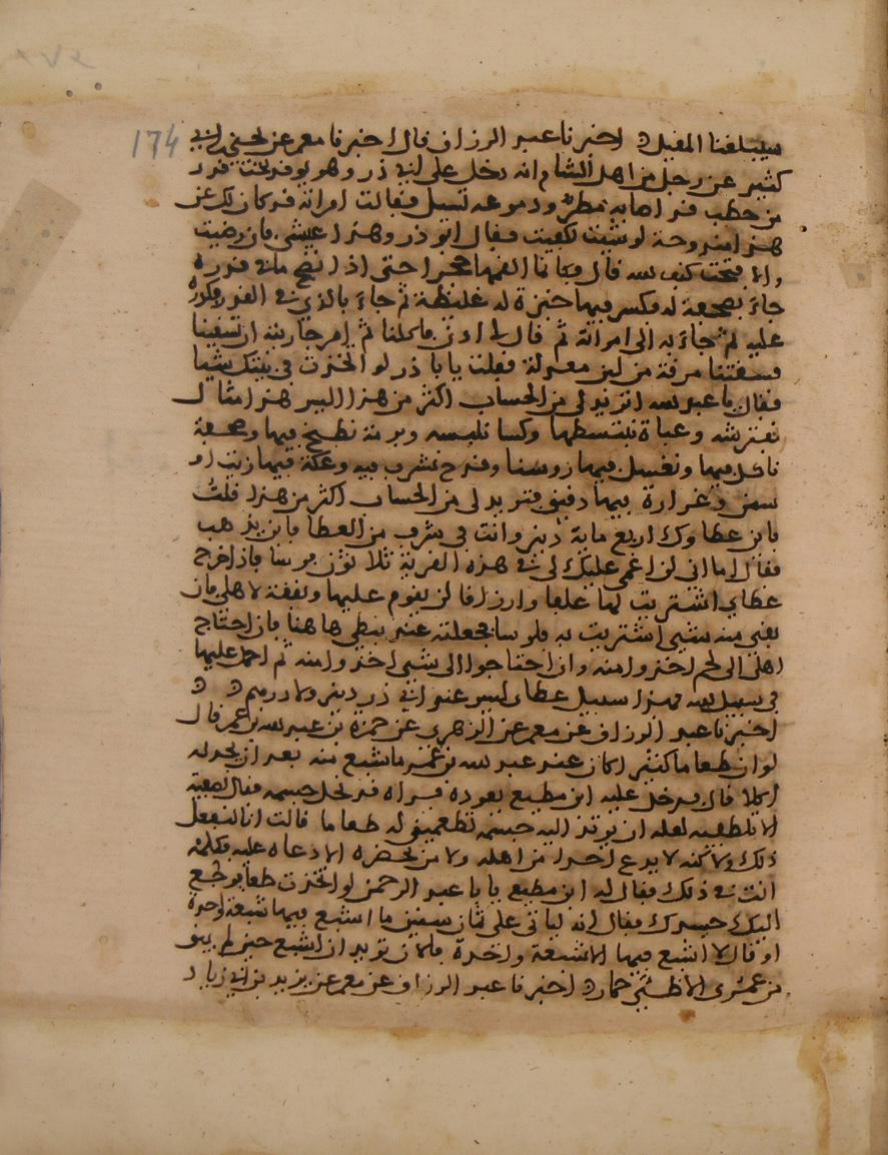 سيبلغنا المقيل اخبرنا عبد الرزاق قال اخبرنا معمر عن يحيى بن ابي 174
كثير عن رجل من اهل الشام انه دخل على ابي ذر وهو يوقد تحت قدر
من حطب قد اصابه مطر ودموعه تسيل فقالت امراته قد كان لك عن
هذا مندوحة لو شيت لكفيت فقال ابو ذر وهذا عيشي فان رضيت
والا فتحت كنف الله قال فكانما القمها حجرا حتى اذا نضج ما في قدره
جاء بصحفة له فكسر فيها خبزة له غليظة ثم جاء بالذي في القدر فكدره
عليه ثم جاء به الى امراته ثم قال لي ادن فاكلنا ثم امر جاريته ان تسقينا
فسقتنا مرقة من لبن معزاه فقلت يابا ذر لو اتخذت في بيتك شيا
فقال يا عبد الله اتريد لي من الحساب اكثر من هذا اليس هذا مثال
نفترشه وعباة نبتسطها وكسا نلبسه وبرمة نطبخ فيها وصحفة
ناكل فيها ونغسل فيها روسنا وقدح نشرب فيه وعكة فيها زيت او
سمن وغرارة فيها دقيق فتريد لي من الحساب اكثر من هذا قلت
فاين عطاوك اربع ماية دينر وانت في شرف من العطا فاين يذهب
فقال اما اني لن اعمي عليك لي في هذه القرية ثلاثون فرسا فاذا خرج
عطاي اشتريت لها علفا وارزاقا لمن يقوم عليها ونفقة لاهلي فان
بقي منه شي اشتريت به فلوسا فجعلته عند نبطي ها هنا فان احتاج
اهلي الى لحم اخذوا منه وان احتاجوا الى شي اخذوا منه ثم احمل عليها
في سبيل الله فهذا سبيل عطاي ليس عند ابي ذر دينر ولا درهم
اخبرنا عبد الرزاق عن معمر عن الزهري عن حمزة بن عبد الله بن عمر قال
لو ان طعاما كثيرا كان عند عبد الله بن عمر ما شبع منه بعد ان يجد له
اكلا قال فدخل عليه ابن مطيع يعوده فراه قد نحل جسمه فقال لصفية
الا تلطفيه لعله ان يرتد اليه جسمه تصنعين له طعاما قالت انا لنفعل
ذلك ولاكنه لا يدع احدا من اهله ولا من يحضره الا دعاه عليه فكلمه
انت في ذلك فقال له ابن مطيع يابا عبد الرحمن لو اتخذت طعاما يرجع
اليك جسدك فقال انه لياتي علي ثمان سنين ما اشبع فيها شبعة واحدة
او قال لا اشبع فيها الا شبعة واحدة فالان تريد ان اشبع حين لم يبق
من عمري الا ظمي حمار اخبرنا عبد الرزاق عن معمر عن يزيد بن ابي زياد